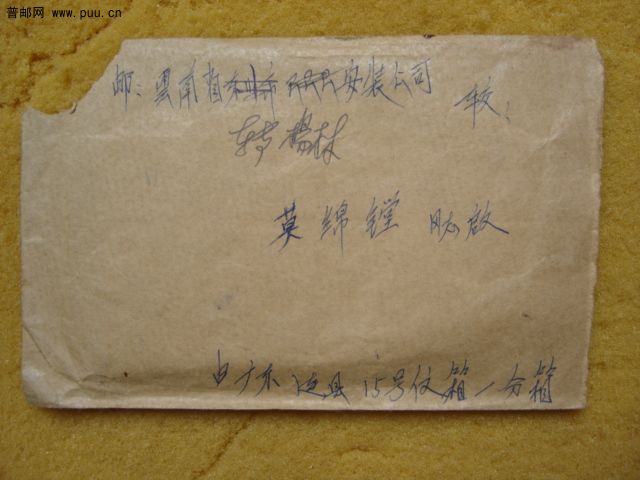 普邮网 www.puu.cn
邮:雲南省 安装公司
转
莫绵镗 同志啟
由广东连县15号信箱一分箱